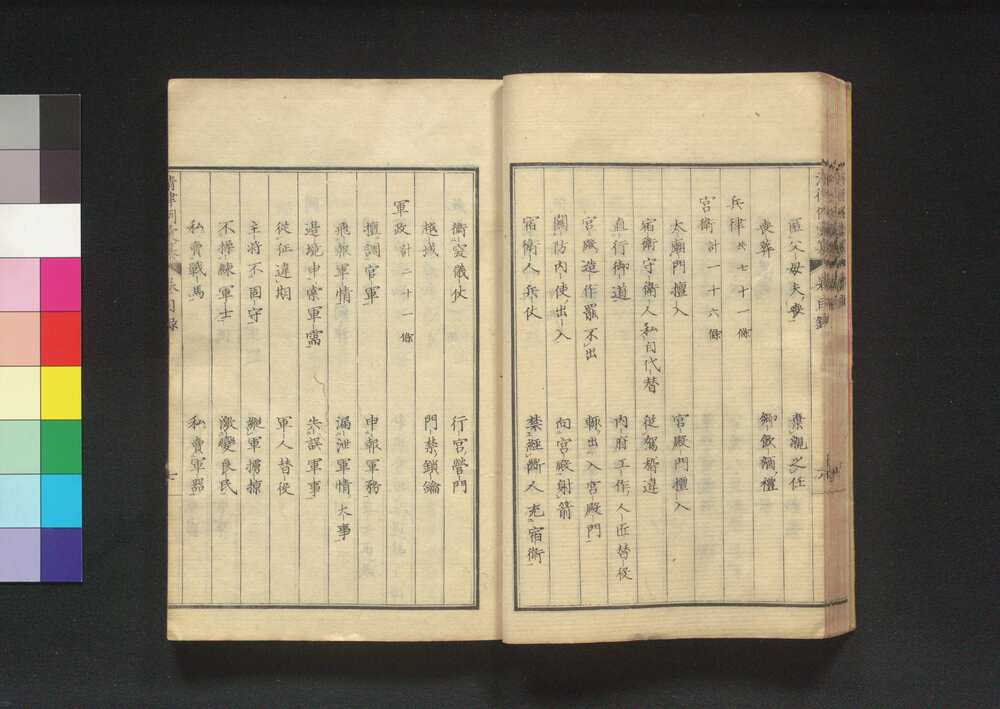 匿父母夫喪 棄親之任
喪葬 鄉飲酒禮
兵律共七十一條
宮衛計一十六條
太廟門擅入 宮殿門擅入
宿衛守衛人私自代替 從駕稽違
直行御道 內府工作人匠替役
宮殿造作罷不出 輙出入宮殿門
關防內使出入 向宮殿射箭
宿衛人兵仗 禁經斷人充宿衛
衝突儀仗 行宮營門
越城 門禁鎖鑰
軍政計二十一條
擅調官軍 申報軍務
飛報軍情 漏泄軍情大事
邊境申索軍需 失誤軍事
從征違期 軍人替役
主將不固守 縱軍擄掠
不操練軍士 激變良民
私賣戰馬 私賣軍器